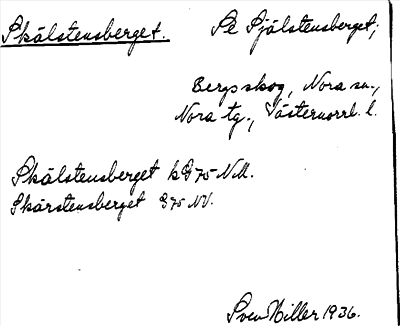 Skälstensberget. Se Själstensberget,
Bergsskog, Nora sn.,
Nora tg., Västernorrl. l.
Skälstensberget k G75 NM.
Skärstensberget G75 NV.
Sven Hiller 1936.